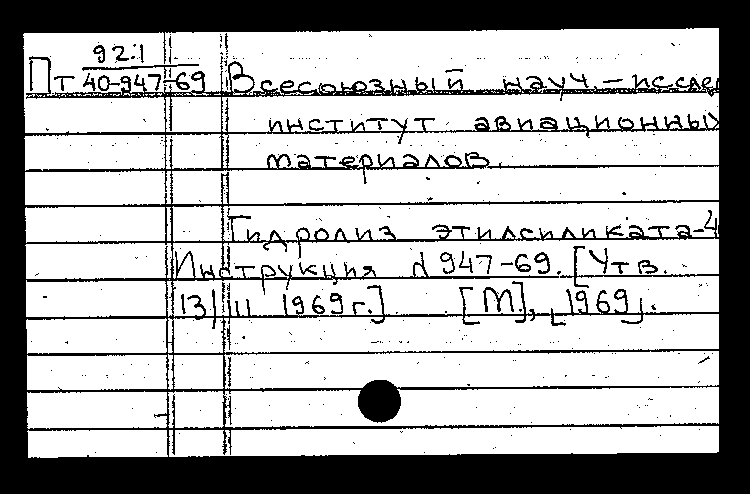 92:1
Пт 40-947-69 Всесоюзный науч.-исслед
институт авиационных
материалов.
Гидролиз этилсиликата-4
Инструкция № 947-69. [Утв.
13/II 1969г.] [М], [1969].